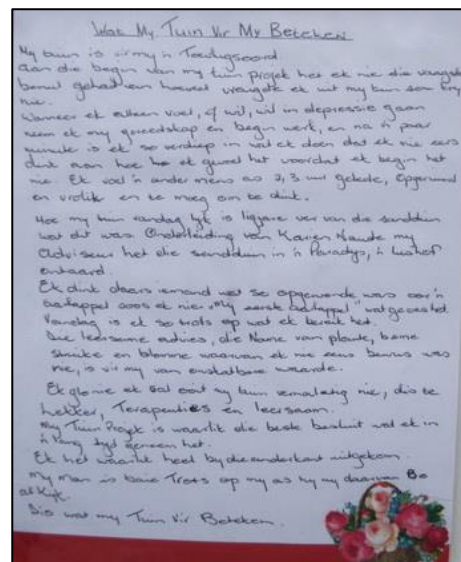 Wat My Tuin Vir My Beteken
My tuin is vir my 'n Toevlugsoord
Aan die begin van my tuin projek het ek nie die vaagste
benul gehad van hoeveel vreugde ek uit my tuin sou kry
nie.
Wanneer ek alleen voel, of wil, wil in depressie gaan
neem ek my gereedskap en begin werk, en na 'n paar
minute is ek so verdiep in wat ek doen dat ek nie eers
dink aan hoe ek gevoel het voordat ek begin het
nie. Ek voel 'n ander mens as 2, 3 uur gelede, opgeruimd
en vrolik en te moeg om te dink.
Hoe my tuin vandag lyk is ligjare ver van die sandduin
wat dit was. Onderleiding van Karien Naude my
adviseur het die sandduin in 'n Paradys, 'n lushof
ontaard.
Ek dink daar's iemand wat so opgewonde was oor 'n
aartappel soos ek nie, "My eerste aartappel" wat geoes het.
Vandag is ek so trots op wat ek bereik het.
Die leersame advies, die Name van plante, bome
struike en blomme waarvan ek nie eens bewus was
nie, is vir my van onskatbare waarde.
Ek glo nie ek sal ooit my tuin vernalatig nie, dis te
lekker, Terapeuties en leersaam.
My Tuin Projek is waarlik die beste besluit wat ek in
'n lang tyd geneem het.
Ek het waarlik heel by die anderkant uitgekom.
My man is baie Trots op my as hy my daarvan
Dis wat my Tuin Vir Beteken.